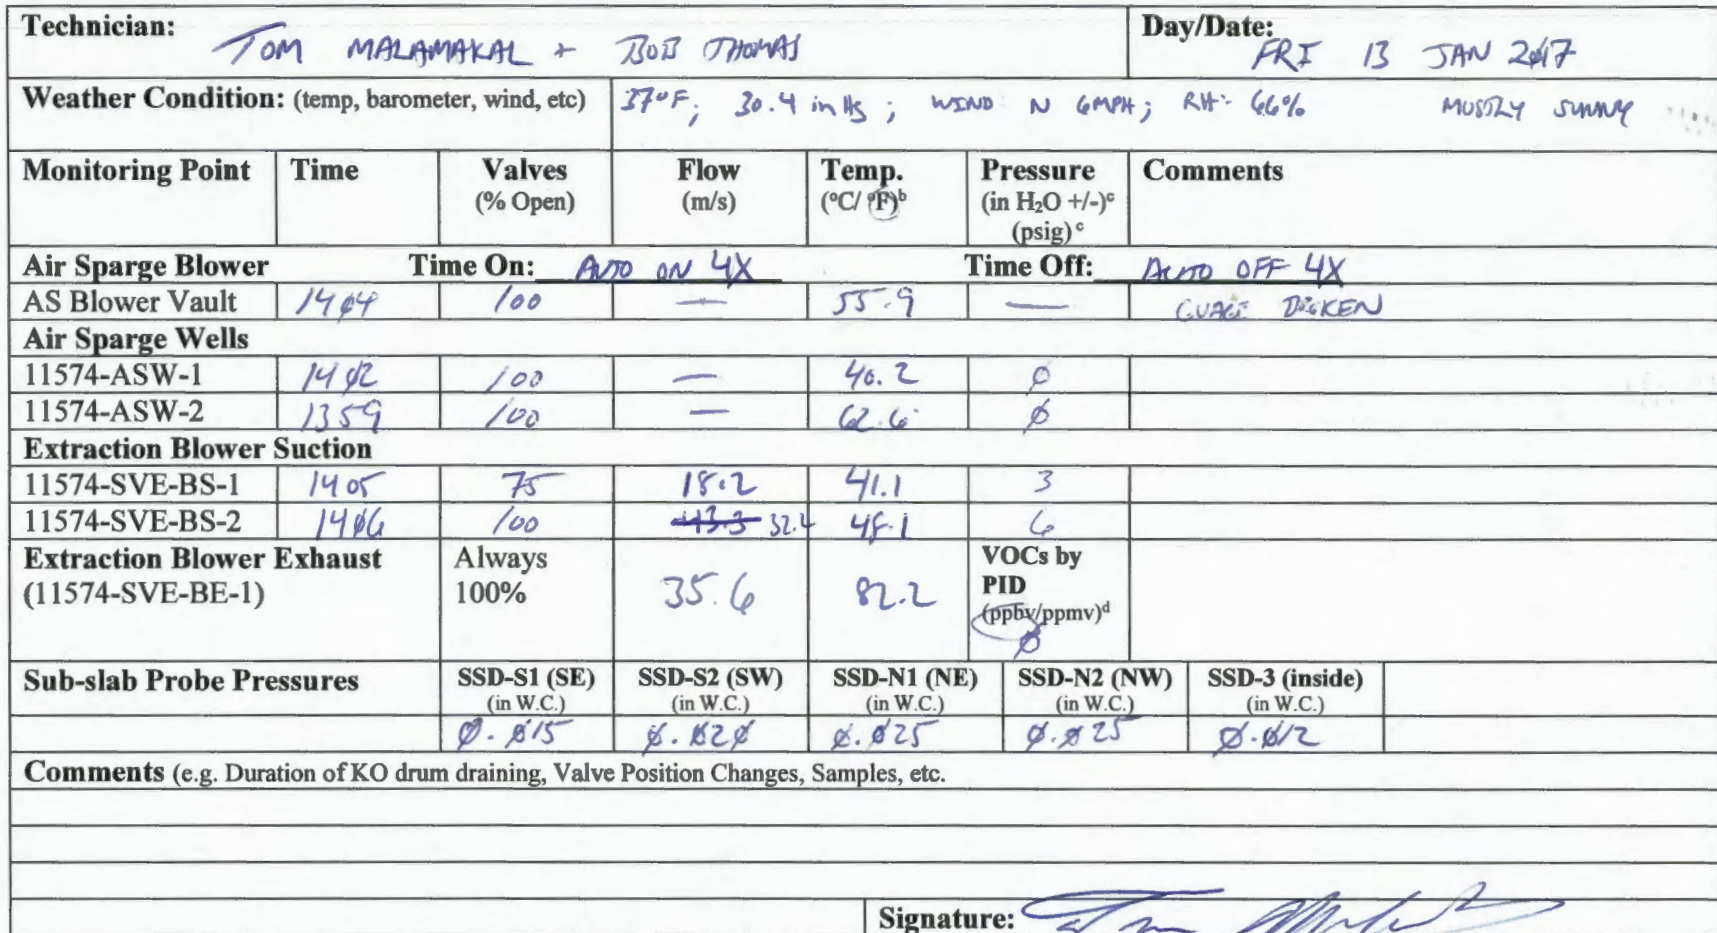 Technician: TOM MALAMAKAL + BOB THOMAS Day/Date: FRI 13 JAN 2017
Weather Condition: (temp, barometer, wind, etc) 37°F; 30.4 in Hg; WIND N 6MPH; RH: 66% MOSTLY SUNNY
Monitoring Point Time Valves (% Open) Flow (m/s) Temp. (°C/ °F)b Pressure (in H2O +/-)c (psig)c Comments
Air Sparge Blower Time On: AUTO ON 4X Time Off: AUTO OFF 4X
AS Blower Vault 1404 100 — 55.9 — GUAGE BROKEN
Air Sparge Wells
11574-ASW-1 1402 100 — 40.2 0
11574-ASW-2 1359 100 — 62.6 0
Extraction Blower Suction
11574-SVE-BS-1 1405 75 18.2 41.1 3
11574-SVE-BS-2 1406 100 43.3 32.4 48.1 6
Extraction Blower Exhaust (11574-SVE-BE-1) Always 100% 35.6 82.2 VOCs by PID (ppbv/ppmv)d 0
Sub-slab Probe Pressures SSD-S1 (SE) (in W.C.) SSD-S2 (SW) (in W.C.) SSD-N1 (NE) (in W.C.) SSD-N2 (NW) (in W.C.) SSD-3 (inside) (in W.C.)
0.015 0.020 0.025 0.025 0.012
Comments (e.g. Duration of KO drum draining, Valve Position Changes, Samples, etc.
Signature: